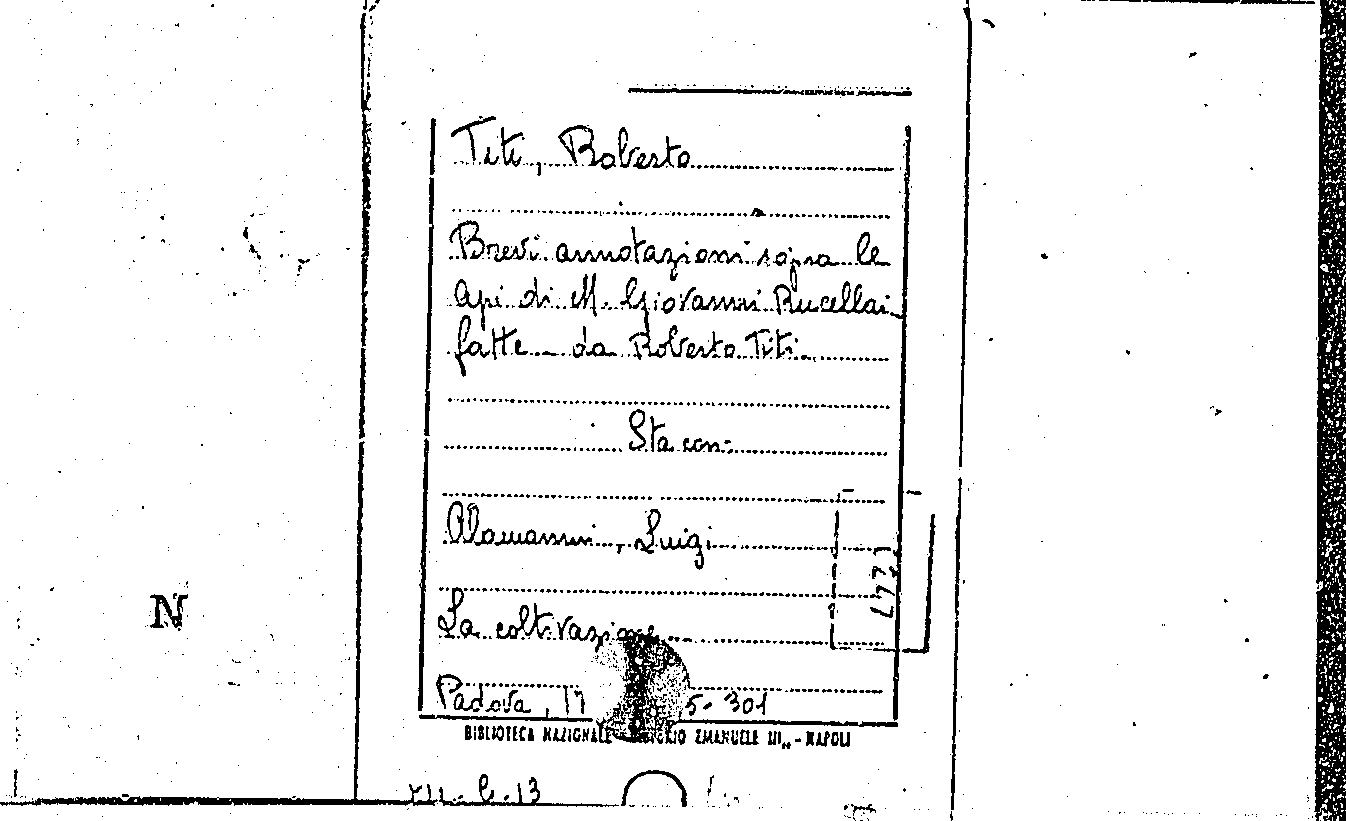 Titi, Roberto
Brevi annotazioni sopra le
Api di M. Giovanni Rucellai
fatte da Roberto Titi.
Sta con:
Alamanni, Luigi
La coltivazione
Padova, 17 5-301
BIBLIOTECA NAZIONALE EMANUELE III,, - NAPOLI
N